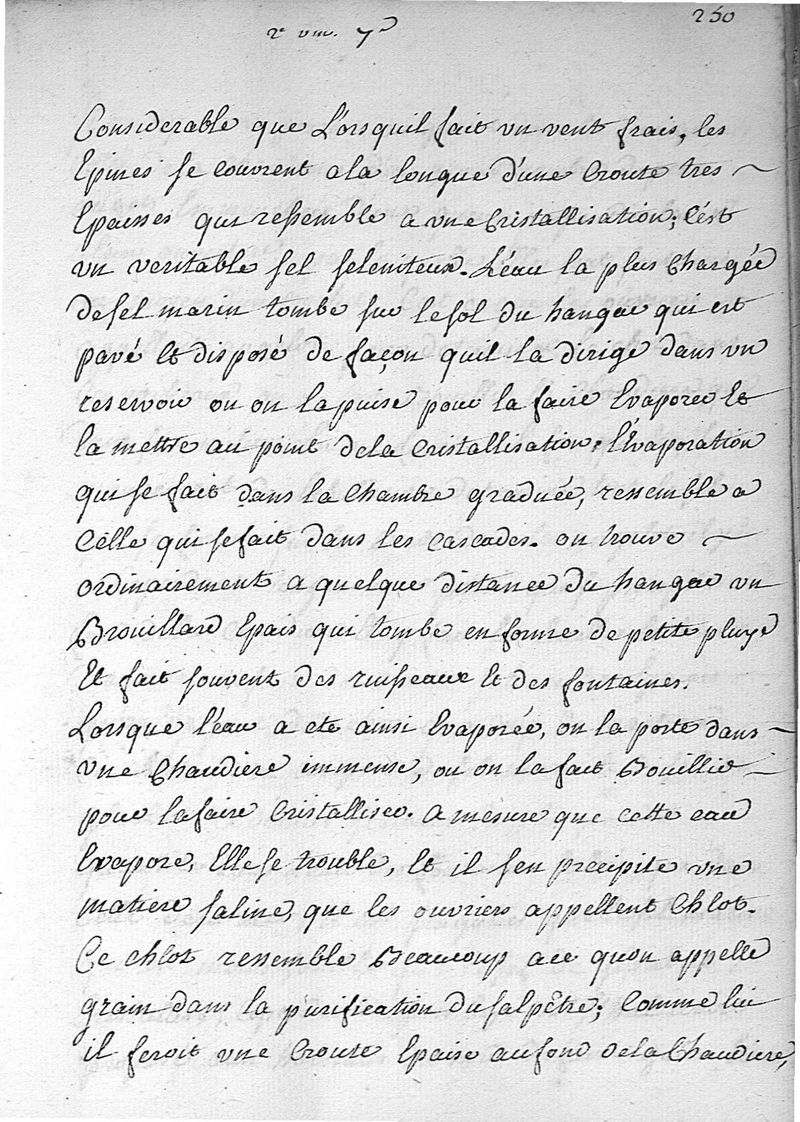 250
2e vol. 7d
Considerable que L'orsquil fait un vent frais, les
Epines se couvrent a la longue d'une Croute tres
Epaisses qui ressemble a une Cristallisation; C'est
un veritable sel seleniteux. L'eau la plus Chargée
de sel marin tombe sur le sol du hangar qui est
pavé Et disposé de façon quil la dirige dans un
reservoir ou on la puise pour la faire Evaporer Et
la mettre au point de la Cristallisation. l'Evaporation
qui se fait dans la Chambre graduée, ressemble a
Celle qui se fait dans les cascades. on trouve
ordinairement a quelque distance du hangar un
Brouillard Epais qui tombe en forme de petite pluye
Et fait souvent des ruisseaux Et des fontaines.
Lorsque l'eau a eté ainsi Evaporée, on la porte dans
une Chaudiere immense, ou on la fait Bouillir
pour la faire Cristalliser. a mesure que cette eau
Evapore, Elle se trouble, Et il s'en precipite une
matiere saline, que les ouvriers appellent Chlot.
Ce chlot ressemble Beaucoup a ce quon appelle
grain dans la purification du salpêtre; Comme lui
il feroit une Croute Epaise au fond de la Chaudiere,